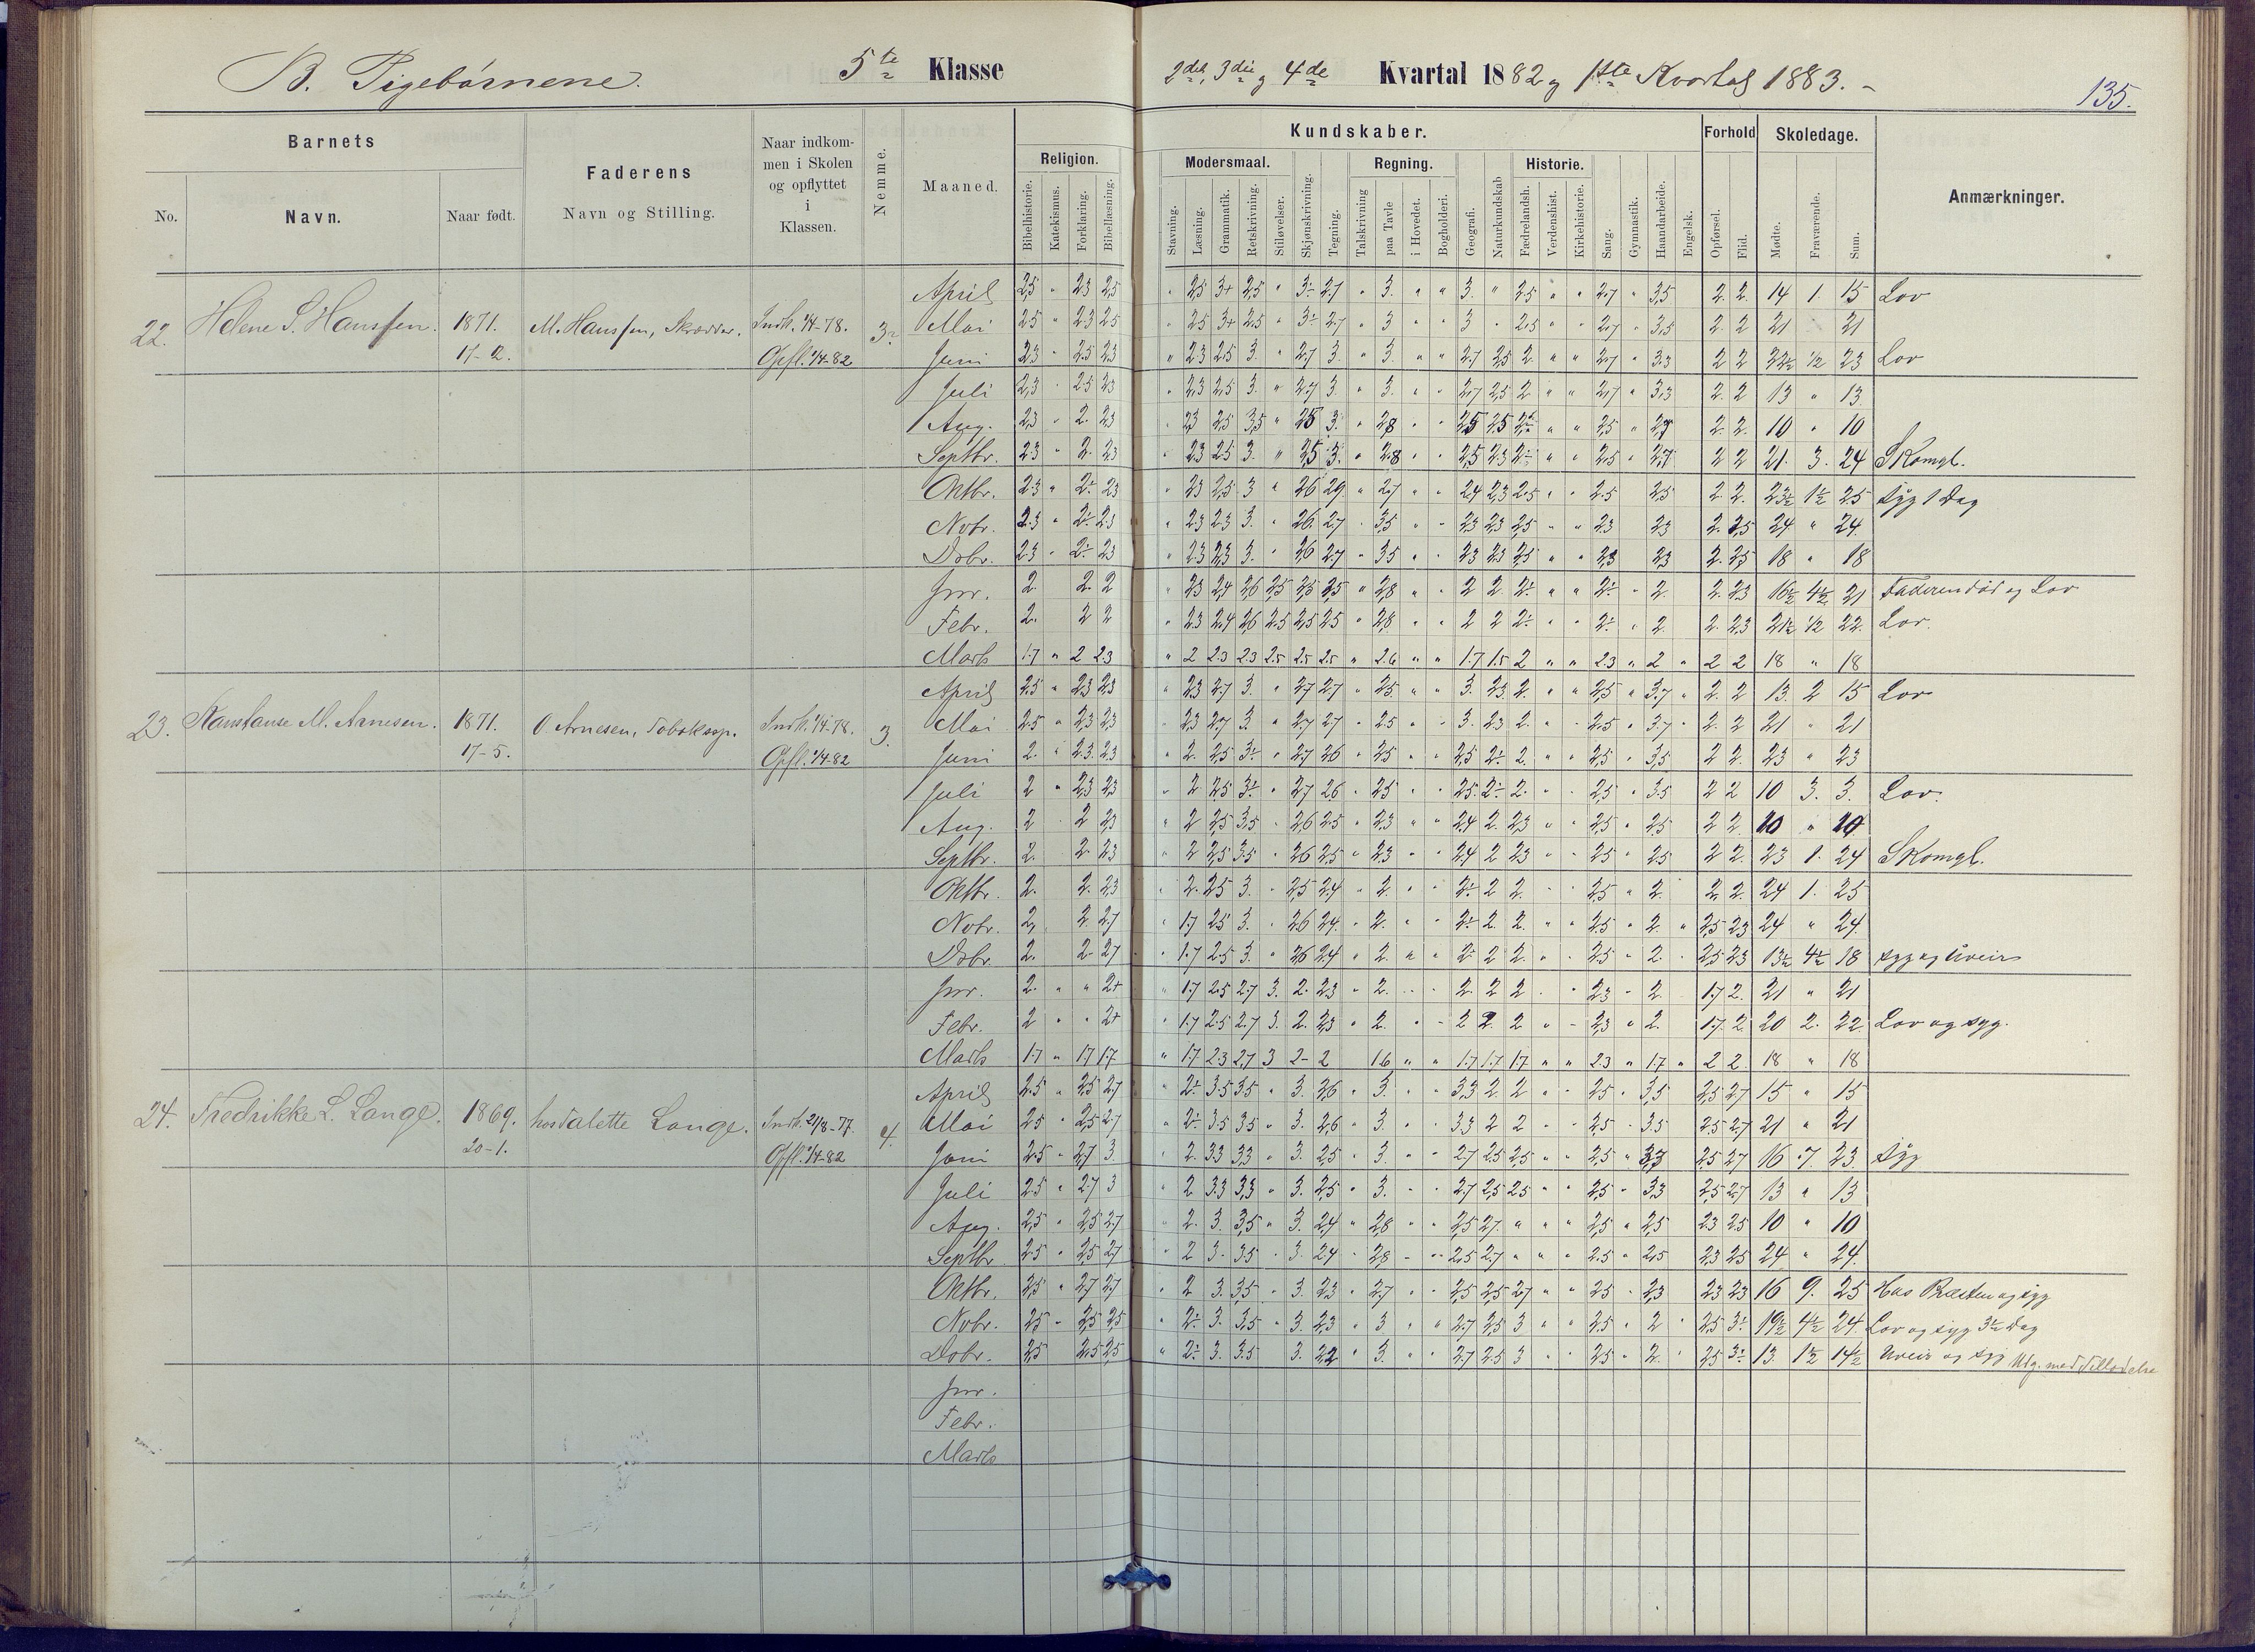 B. Pigebørnene. 5te Klasse 2det, 3die og 4de Kvartal 1882 og 1ste Kvartal 1883. - 135.
Barnets
Faderens
Naar indkommen i Skolen og opflyttet i Klassen.
Nemme.
Maaned.
Kundskaber.
Forhold
Skoledage.
Anmærkninger.
No.
Navn.
Naar født.
Navn og Stilling.
Religion.
Modersmaal.
Regning.
Historie.
Bibelhistorie.
Katekismus.
Forklaring.
Bibellæsning.
Stavning.
Læsning.
Grammatik.
Retskrivning.
Stiløvelser.
Skjønskrivning.
Tegning.
Talskrivning
paa Tavle
i Hovedet.
Bogholderi.
Geografi.
Naturkundskab
Fædrelandsh.
Verdenshist.
Kirkehistorie.
Sang.
Gymnastik.
Haandarbeide.
Engelsk.
Opførsel.
Flid.
Mødte.
Fraværende.
Sum.
22. Helene S. Hanssen. 1871. 17-2. M. Hanssen, Skrædder. Indk. 1/4-78. Opfl. 1/4-82 3
April 2,5 " 2,3 2,5 " 2,5 3+ 2,5 " 3÷ 2,7 " 3. " " 3. " 2,5 " " 2,7 " 3,5 2. 2. 14 1. 15 Lov
Mai 2,5 " 2,3 2,5 " 2,5 3+ 2,5 " 3÷ 2,7 " 3 " " 3 " 2,5 " " 2,7 " 3,5 2. 2 21 21
Juni 2,3 " 2,5 2,3 " 2,3 2,5 3. " 2,7 3. " 3. " " 2,7 2,5 2. " " 2,7 " 3,3 2 2 22½ 1/2 23 Lov
Juli 2,3 " 2,5 2,3 " 2,3 2,5 3. " 2,7 3. " 3. " " 2,7 2,5 2 " " 2,7 " 3,3 2. 2 13 " 13.
Aug. 2,3 " 2. 2,3 " 2,3 2,5 3,5 " 2,5 3. " 2,8 " " 2,5 2,5 2÷ " " 2,5 " 2,7 2. 2. 10 " 10
Septbr. 2,3 " 2. 2,3 " 2,3 2,5 3. " 2,5 3. " 2,8 " " 2,5 2,3 2÷ " " 2,5 " 2,7 2 2 21. 3. 24 Skomgl.
Oktbr. 2,3 " 2÷ 2,3 " 2,3 2,5 3 " 2,6 2,9 " 2,7 " " 2,4 2,3 2,5 " " 2,5 2,5 2. 2. 23½ 1½ 25 syg 1 Dag
Novbr. 2,3 " 2÷ 2,3 " 2,3 2,3 3. " 2,6 2,7 " 3,5 " " 2,3 2,3 2,5 " " 2,3 2,3 2. 2,5 24. " 24.
Debr. 2,3 " 2÷ 2,3 " 2,3 2,3 3. " 2,6 2,7 " 3,5 " " 2,3 2,3 2,5 " " 2,3 2,3 2. 2,5 18 " 18
Jnr. 2. 2. 2 " 2,3 2,4 2,6 2,5 2,5 2,5 " 2,8 " " 2 2 2÷ " " 2÷ " 2. 2. 2,3 16½ 4½ 21 Faderens død og Lov
Febr. 2. 2 2 " 2,3 2,4 2,6 2,5 2,5 2,5 " 2,8 " " 2 2 2÷ " " 2÷ " 2. 2. 2,3 21½ 1/2 22. Lov.
Marts 1.7 " 2 2.3 " 2 2.3 2.3 2.5 2.5 2.5 " 2.6 " " 1.7 1.5 2 " " 2.3 " 2 " 2 2 18 " 18
23. Konstanse M. Arnesen. 1871. 17-5. O Arnesen, Tobaksp. Indk. 1/4-78. Opfl. 1/4-82 3.
April 2,5 " 2,3 2,3 " 2,3 2,7 3. " 2,7 2,7 " 2,5 " " 3. 2,3 2. " " 2,5 " 3,7 " 2. 2 13. 2 15 Lov
Mai 2,5 " 2,3 2,3 " 2,3 2,7 3 " 2,7 2,7 " 2,5 " " 3. 2,3 2. " " 2,5 " 3,7 " 2. 2 21 " 21
Juni 2. " 2,3 2,3 " 2. 2,5 3÷ " 2,7 2,6 " 2,5 " " 2,5 2÷ 2. " " 2,5 " 3,5 2 2. 23 " 23
Juli 2 " 2,3 2,3 " 2 2,5 3÷ " 2,7 2,6 " 2,5 " " 2,5 2÷ 2. " " 2,5 " 3,5 2 2 10 3. 3. Lov.
Aug. 2 2 2,3 " 2 2,5 3,5 " 2,6 2,5 " 2,3 " " 2,4 2. 2,3 " " 2,5 " 2,5 2 2. 10 " 10
Septbr. 2. 2. 2,3 " 2 2,5 3,5 " 2,6 2,5 " 2,3 " " 2,4 2 2,3 " " 2,5 " 2,5 2 2. 23 1. 24 Skomgl.
Oktbr. 2. 2. 2,3 " 2. 2,5 3. " 2,5 2,4 " 2. " " 2÷ 2 2. " " 2,5 " 2. 2, 2. 24 1. 25
Novbr. 2, 2. 2,7 " 1,7 2,5 3. " 2,6 2,4. " 2. " " 2÷ 2. 2. " " 2,5 " 2. " 2,5 2,3 24 " 24.
Debr. 2. 2. 2,7 " 1,7 2,5 3. " 2,6 2,4 " 2. " " 2÷ 2 2. " " 2,5 " 2. " 2,5 2,3 13½ 4½ 18 syg og Uveir
Jnr. 2. " " 2+ " 1,7 2,5 2,7 3. 2. 2,3 " 2. " " 2. 2 2 " " 2,3 " 2. 1,7 2. 21 " 21
Febr. 2 " " 2+ " 1,7 2,5 2,7 3. 2. 2,3 " 2. " " 2 2. 2 " " 2,3 " 2. 1,7. 2. 20 2. 22. Lov og syg.
Marts 1.7 " 1.7 1.7 " 1.7 2.3 2.7 3 2- 2 1.6 " " 1.7 1.7 1.7 " " 2.3 " 1.7 " 2 2. 18 " 18
24. Fredrikke L. Lange. 1869. 20-1. hos Valette Lange. Indk. 21/8-77. Opfl. 1/4-82 4.
April 2.5 " 2,5 2,7 " 2÷ 3.5 3.5 " 3. 2,6 " 3. " " 3,3 2 2 " " 2,5 " 3,5 2,5 2,7 15 " 15
Mai 2,5 " 2,5 2,7 " 2÷ 3.5 3.5 " 3. 2,6 " 3. " " 3,3 2 2 " " 2,5 " 3,5 2,5 2,7 21 " 21
Juni 2.5 " 2,7 3 " 2. 3.3 3,3 " 3. 2,5 " 3 " " 2,7 2,5 2,5 " " 2,5 " 3,3 2,5 2,7 16 7. 23. syg
Juli 2.5 " 2.7 3 " 2 3.3 3,3 " 3. 2,5 " 3. " " 2,7 2,5 2,5 " " 2,5 " 3,3 2,5 2,7 13 " 13
Aug. 2,5 " 2,5 2,7 " 2. 3. 3,5 " 3. 2,4 " 2,8 " " 2,5 2,7. " " " 2,5 " 2,5 2,3 2,5 10 " 10
Septbr. 2.5 " 2,5 2,7 " 2 3. 3.5 " 3. 2.4 " 2,8 " " 2,5 2,7 " " " 2.5 " 2,5 2,3 2,5 24 " 24.
Oktbr. 2,5 " 2,7 2,7 " 2 3. 3,5 " 3. 2,3 " 2,7 " " 2,5 2,5 2,7 " " 2,5 " 2,3 2,3 2,3 16 9. 25 Hos Præsten og syg
Novbr. 2,5 " 2,5 2,5 " 2÷ 3. 3,5 " 3. 2,3 " 3 " " 2,7 2,5 3 " " 2,5 " 2 " 2,5 3÷ 19½ 4½ 24. Lov og syg 3½ Dag
Debr. 2,5 2,5 2,5 " 2÷ 3. 3.5 3. 2,2 " 3. " " 2,7 2,5 3 " " 2,5 " 2. " 2,5 3÷ 13. 1½ 14½ Uveir og syg Udg. med Tilladelse
Jnr.
Febr.
Marts